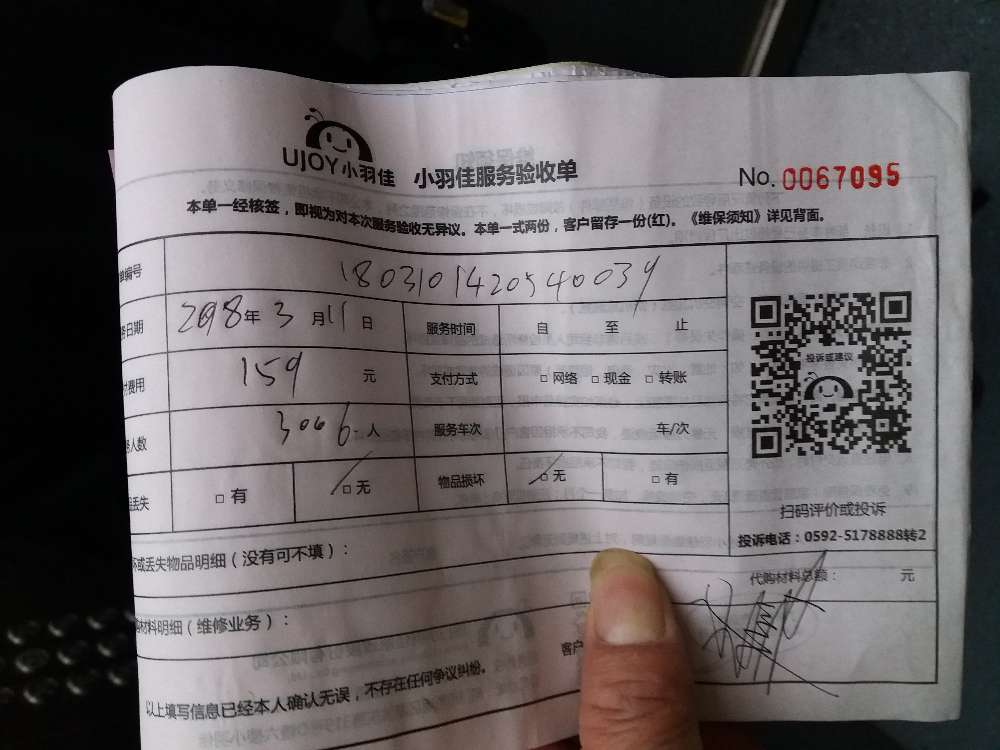 UJOY小羽佳 小羽佳服务验收单 No. 0067095
本单一经核签，即视为对本次服务验收无异议。本单一式两份，客户留存一份(红)。《维保须知》详见背面。
编号 180310142054003
日期 2018年3月11日 服务时间 自 至 止
费用 159 元 支付方式 □网络 □现金 □转账
人数 人 服务车次 车/次
丢失 □有 □无 物品损坏 □无 □有
投诉或建议
扫码评价或投诉
投诉电话：0592-5178888转2
或丢失物品明细（没有可不填）：
代购材料总额： 元
材料明细（维修业务）：
客户
以上填写信息已经本人确认无误，不存在任何争议纠纷。